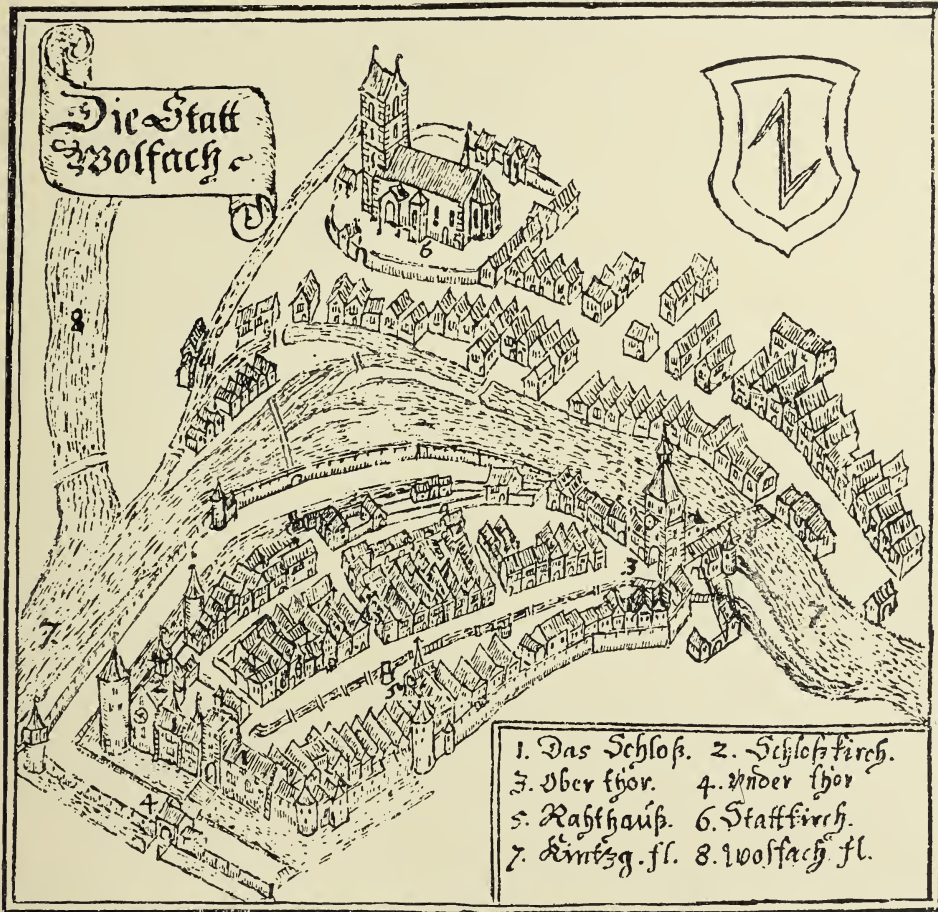 Die Statt
Wolfach.
8
6
3
7
5
7
1
4
1. Das Schloß. 2. Schloßkirch.
3. Ober thor. 4. Vnder thor
5. Rahthauß. 6. Stattkirch.
7. Kintzg. fl. 8. Wolfach fl.